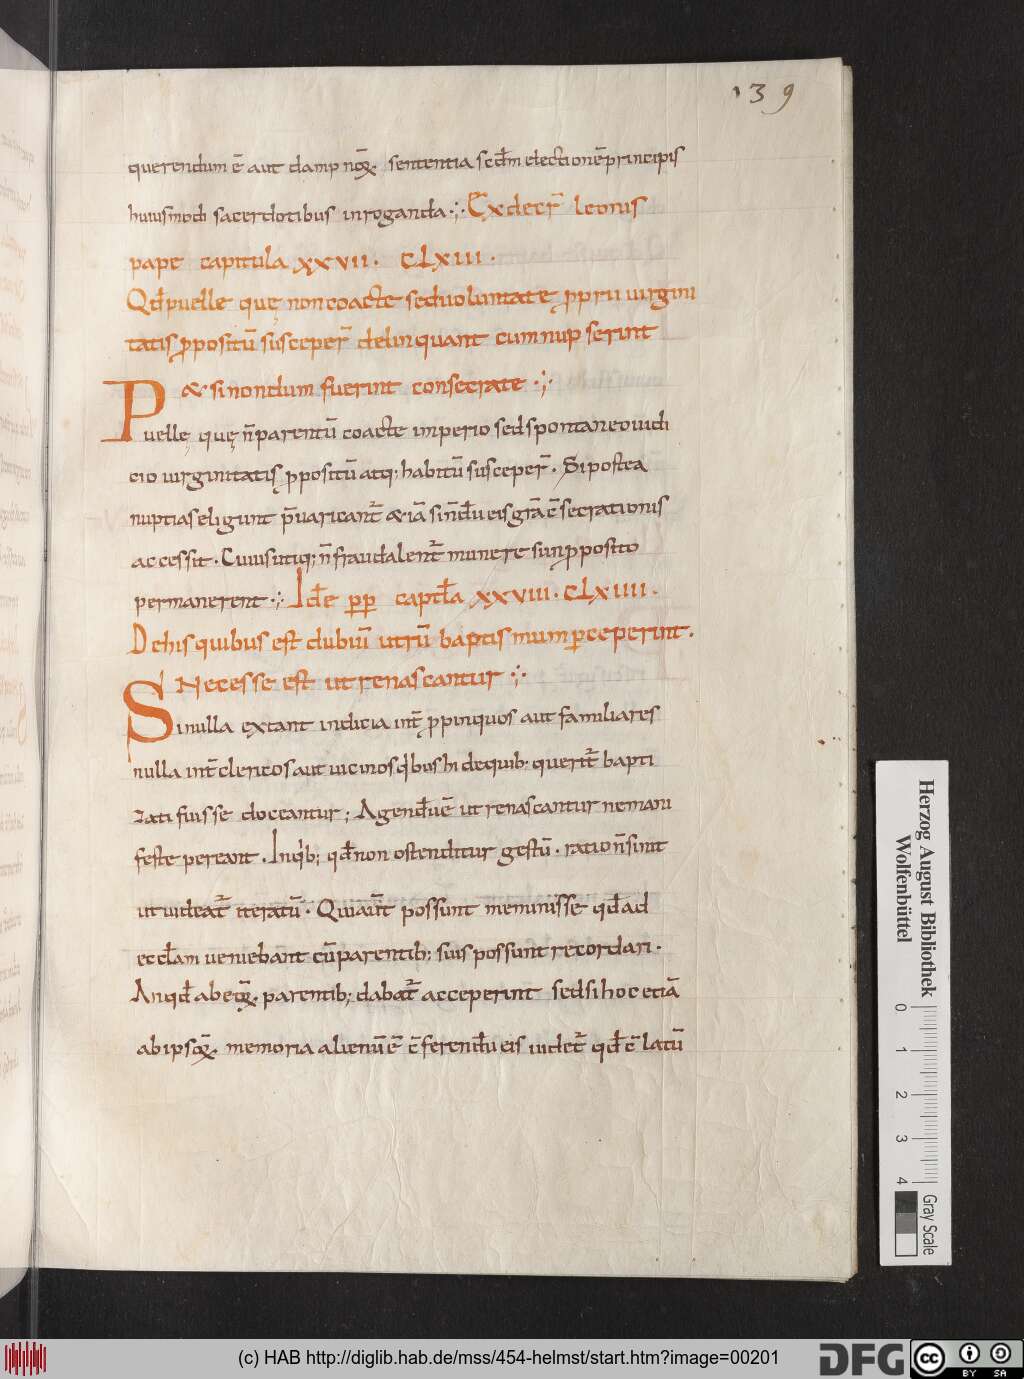 139
querendum ē aut dampnoꝝ. sententia scd̄m electionē principis
huiusmodi sacerdotibus inroganda·:· Ex decr̄ leonis
pape capitula xxvii. clxiii.
Qd̄ puelle quę non coacte sed uoluntate ꝓprii uirgini
tatis ꝓpositū susceper̄ delinquant cum nupserint
& si nondum fuerint consecrate·:·
Puellę quę n̄ parentū coacte inperio sed spontaneo iudi
cio uirginitatis ꝓpositū atq; habitū susceper̄. Si postea
nuptias eligunt p̄uaricant̄ & iā si n̄dū eis gr̄a c̄secrationis
accessit. Cuius utiq; n̄ fraudalent̄ munere si in ꝓposito
permanerent·:· Ide pp capitl̄a xxviii. clxiiii.
De his quibus est dubiū utrū baptismum ꝑceperint.
Necesse est ut renascantur·:·
Si nulla extant indicia int̄ ꝓpinquos aut familiares
nulla int̄ clericos aut uicinos qͥbus hi de quib; querit̄ bapti
zati fuisse doceantur; Agendū ē ut renascantur ne mani
feste pereant. In qͥb; qd̄ non ostenditur gestū. ratio n̄ sinit
ut uideat̄ iteratū. Qui aūt possunt meminisse qd̄ ad
eccl̄am ueniebant cū parentib; suis possunt recordari.
An qd̄ ab eoꝝ. parentib; dabat̄ acceperint sed si hoc etiā
ab ipsoꝝ. memoria alienū ē c̄ferendū eis uidet̄ qd̄ c̄latū
Herzog August Bibliothek
Wolfenbüttel
0 1 2 3 4
Gray Scale
(c) HAB http://diglib.hab.de/mss/454-helmst/start.htm?image=00201
DFG
cc
BY SA